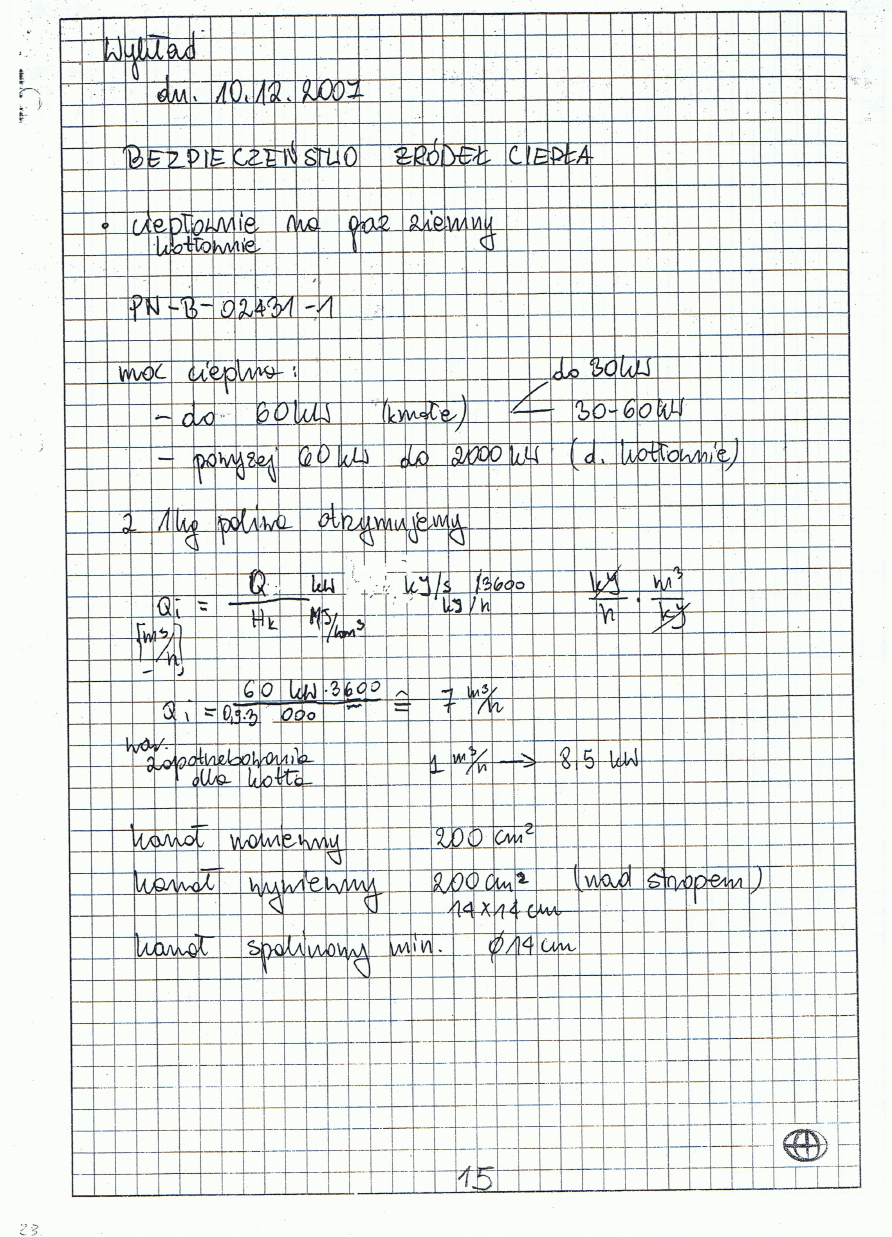 Wykład
dn. 10.12.2007
BEZPIECZEŃSTWO ŹRÓDEŁ CIEPŁA
• ciepłownie na gaz ziemny
kotłownie
PN-B-02431-1
moc cieplna:
do 30kW
- do 60kW (kmałe) 30-60kW
- powyżej 60kW do 2000kW (d. kotłownie)
z 1kg paliwa otrzymujemy
Qi = Q/Hk kW / MJ/nm³ kJ/s /3600 kJ/h kJ/h · m³/kJ
[m³/h]
Qi = 60 kW·3600 / 0,9·3 000 ≅ 7 m³/h
zapotrzebowania 1 m³/h → 8,5 kW
dla kotła
kanał nawiewny 200 cm²
kanał wywiewny 200cm² (nad stropem)
14x14 cm
kanał spalinowy min. ø14cm
15
23.